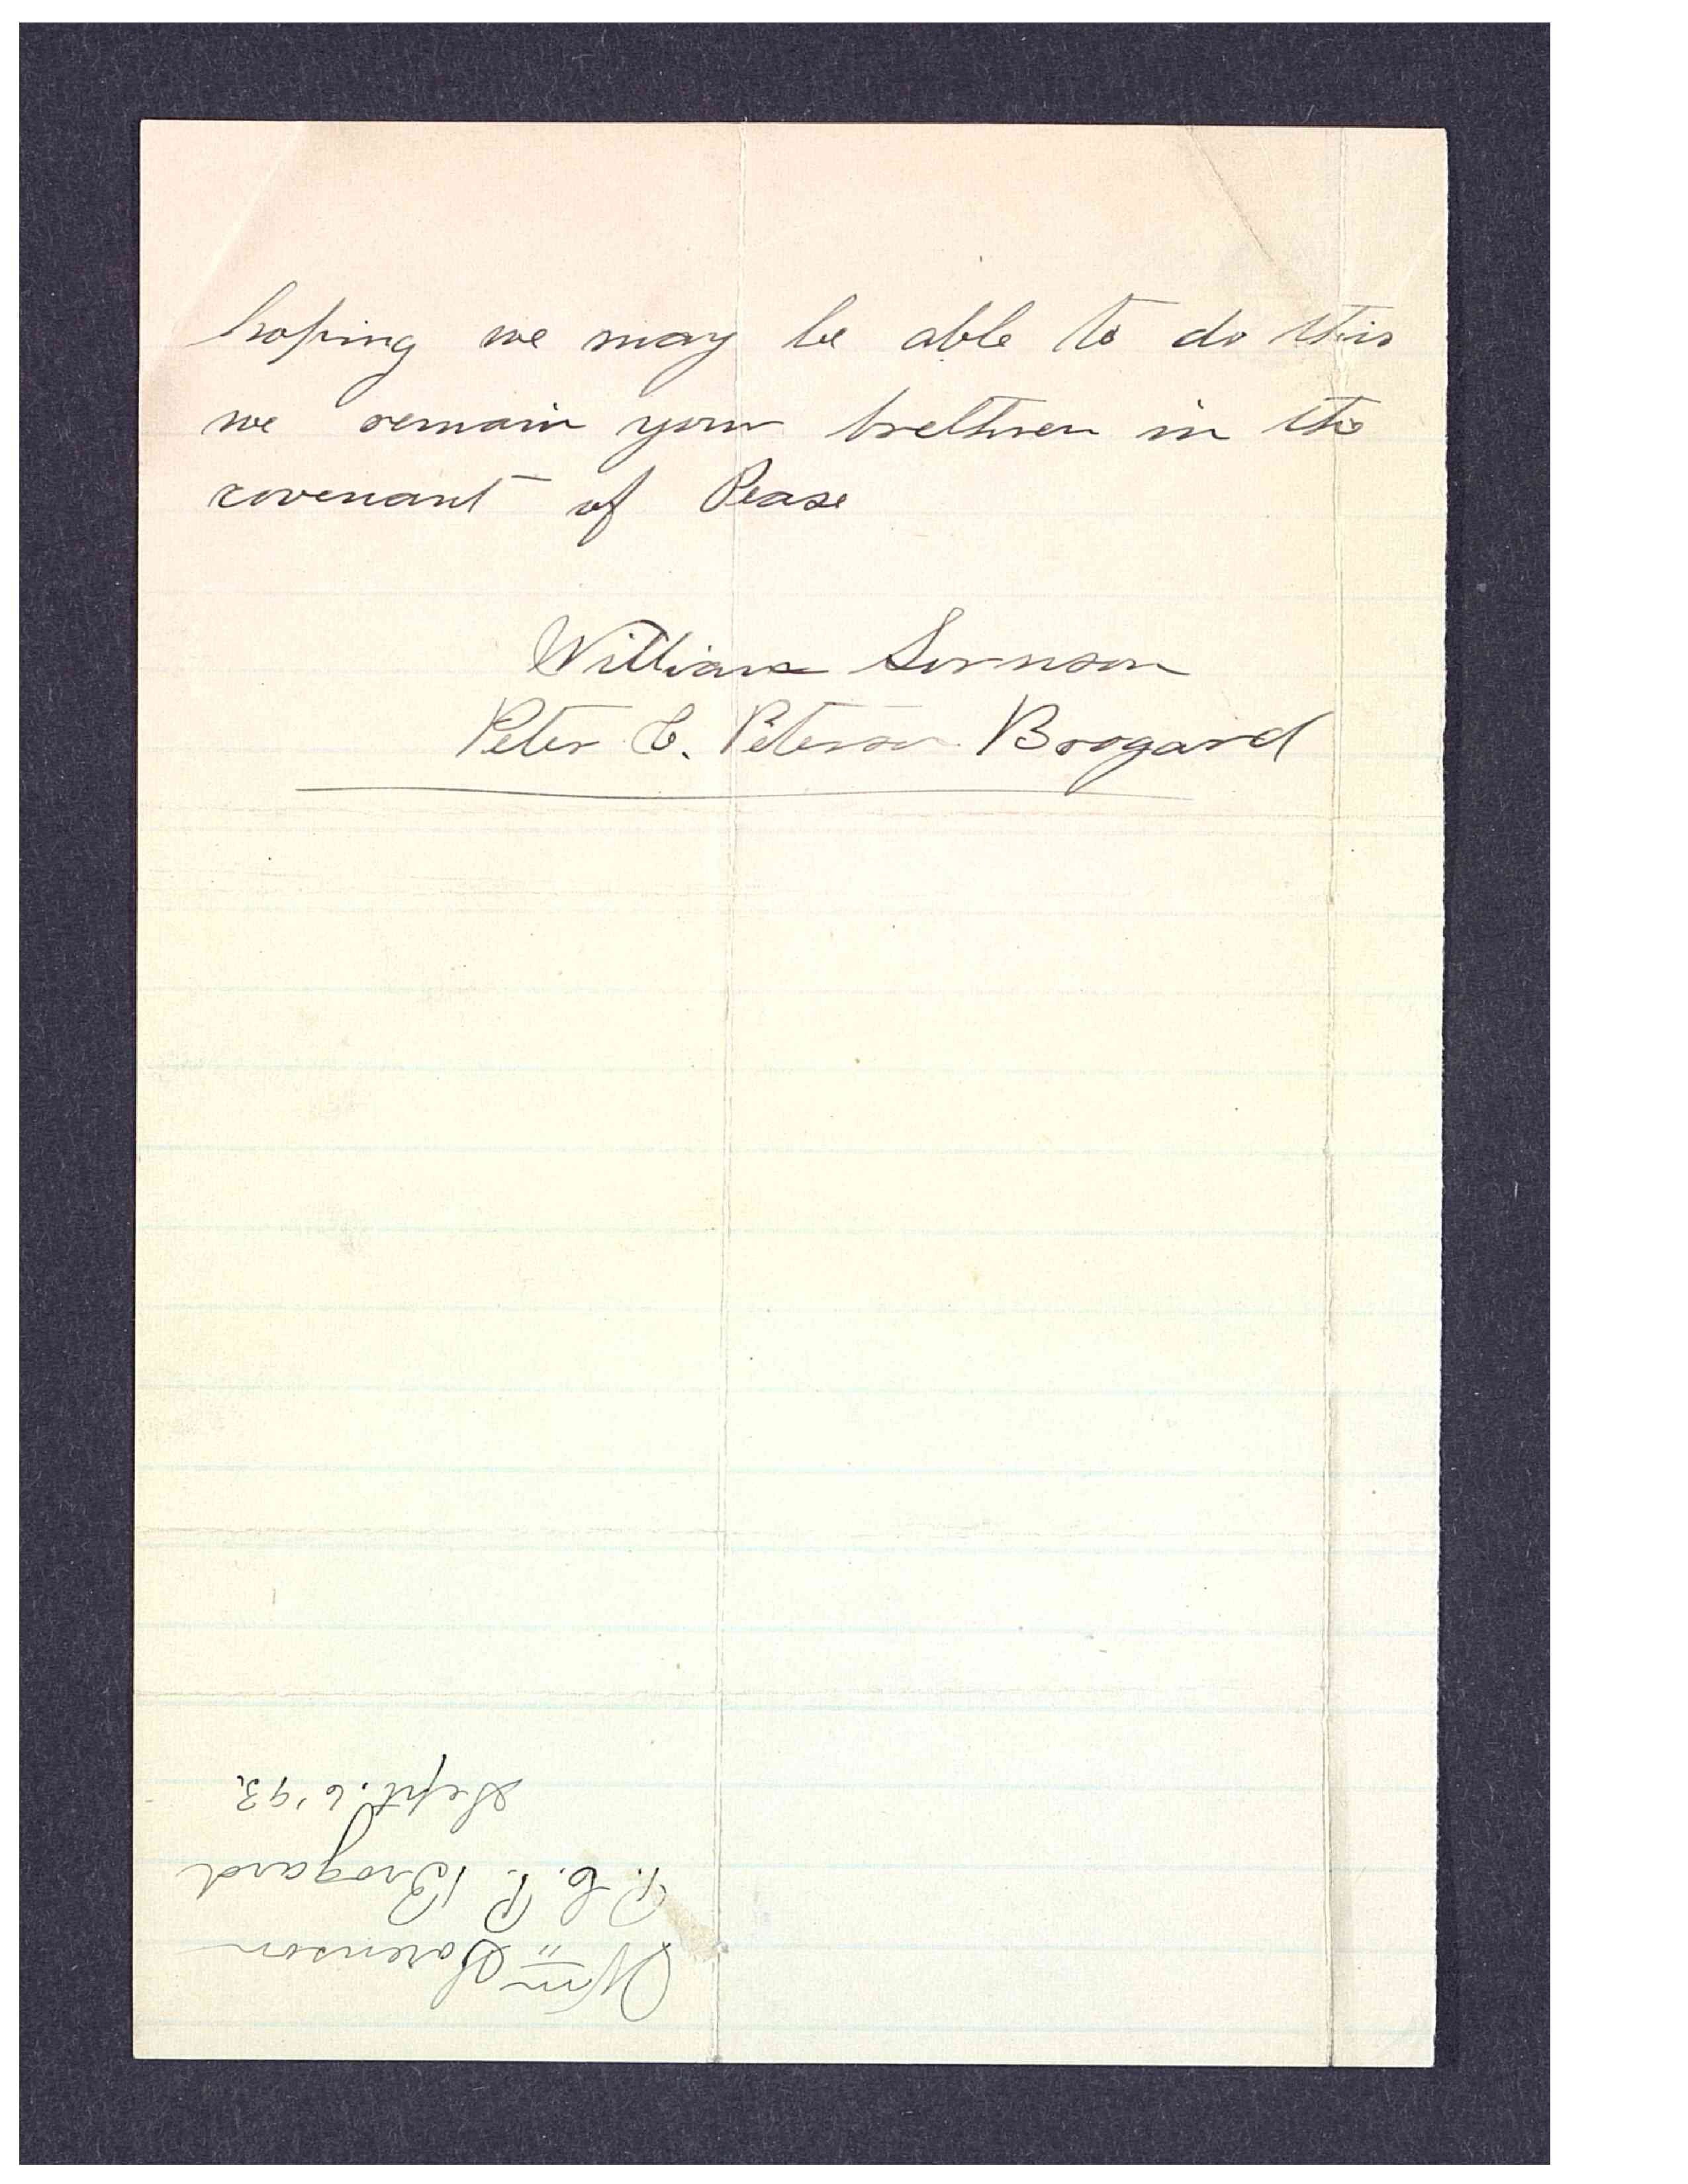 hoping we may be able to do this
we remain your brethren in the
covenant of Pease
William Sornson
Peter E. Peterson Brogard
Wm Sorenson
P. E. P. Brogard
Sept. 6 '93.